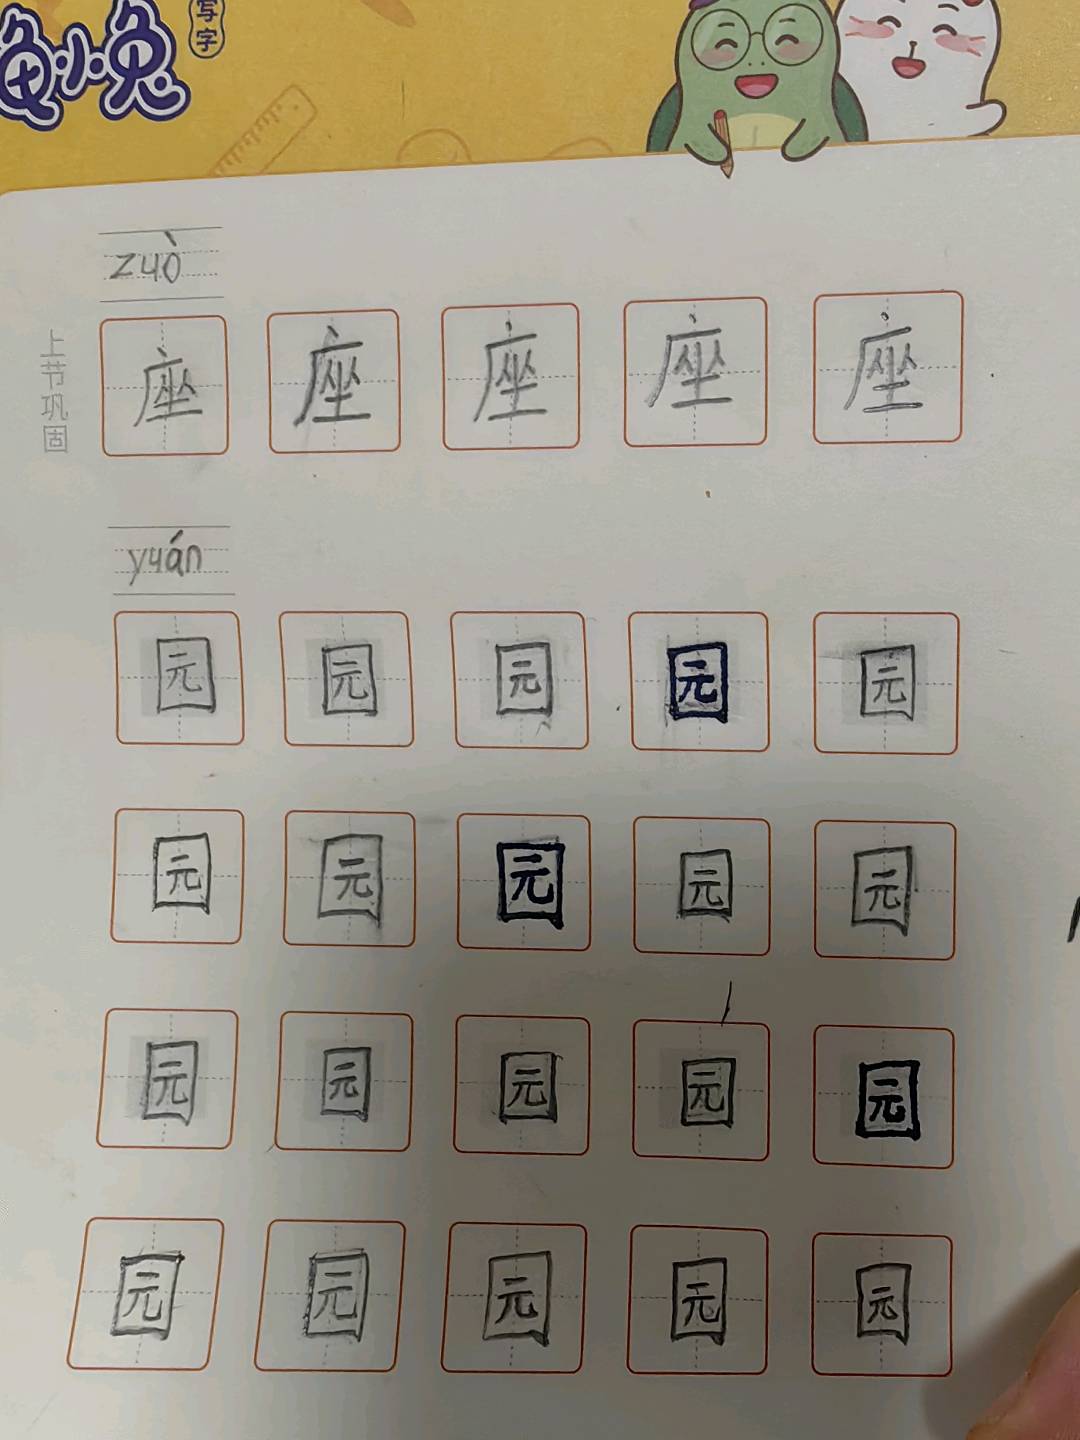 写字
龟小兔
zuò
上节巩固
座 座 座 座 座
yuán
园 园 园 园 园
园 园 园 园 园
园 园 园 园 园
园 园 园 园 园